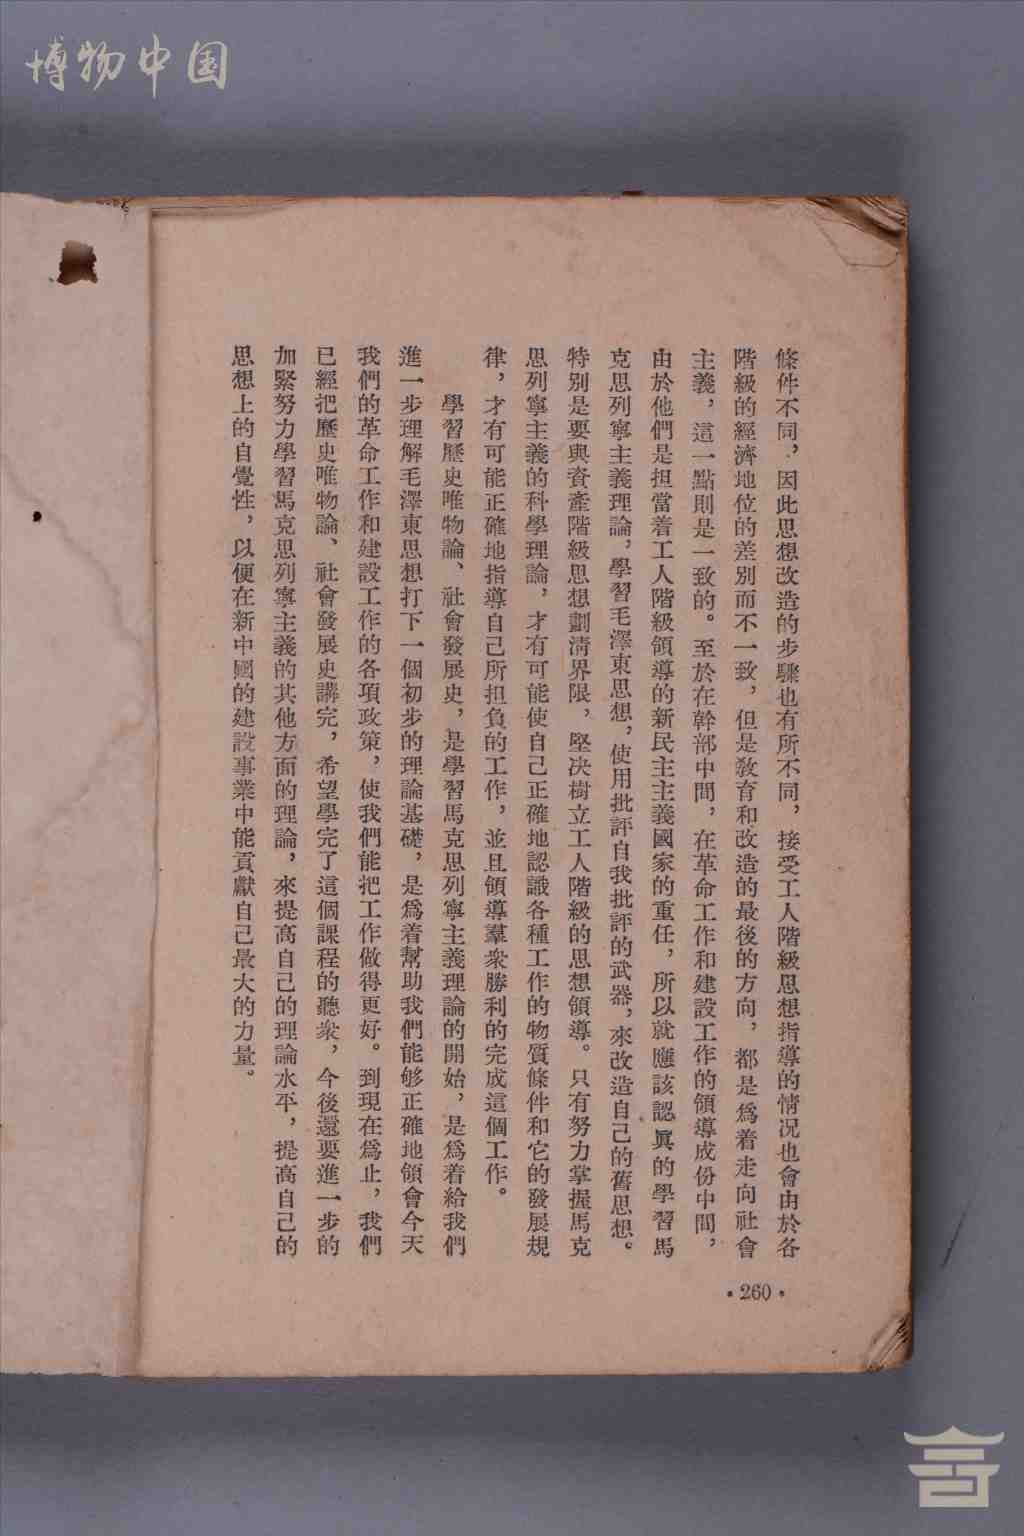 博物中国
條件不同，因此思想改造的步驟也有所不同，接受工人階級思想指導的情況也會由於各
階級的經濟地位的差別而不一致，但是教育和改造的最後的方向，都是爲着走向社會
主義，這一點則是一致的。至於在幹部中間，在革命工作和建設工作的領導成份中間，
由於他們是担當着工人階級領導的新民主主義國家的重任，所以就應該認眞的學習馬
克思列寧主義理論，學習毛澤東思想，使用批評自我批評的武器，來改造自己的舊思想。
特别是要與資產階級思想劃清界限，堅决樹立工人階級的思想領導。只有努力掌握馬克
思列寧主義的科學理論，才有可能使自己正確地認識各種工作的物質條件和它的發展規
律，才有可能正確地指導自己所担負的工作，並且領導羣衆勝利的完成這個工作。
學習歷史唯物論、社會發展史，是學習馬克思列寧主義理論的開始，是爲着給我們
進一步理解毛澤東思想打下一個初步的理論基礎，是爲着幫助我們能够正確地領會今天
我們的革命工作和建設工作的各項政策，使我們能把工作做得更好。到現在爲止，我們
已經把歷史唯物論、社會發展史講完，希望學完了這個課程的聽衆，今後還要進一步的
加緊努力學習馬克思列寧主義的其他方面的理論，來提高自己的理論水平，提高自己的
思想上的自覺性，以便在新中國的建設事業中能貢獻自己最大的力量。
·260·